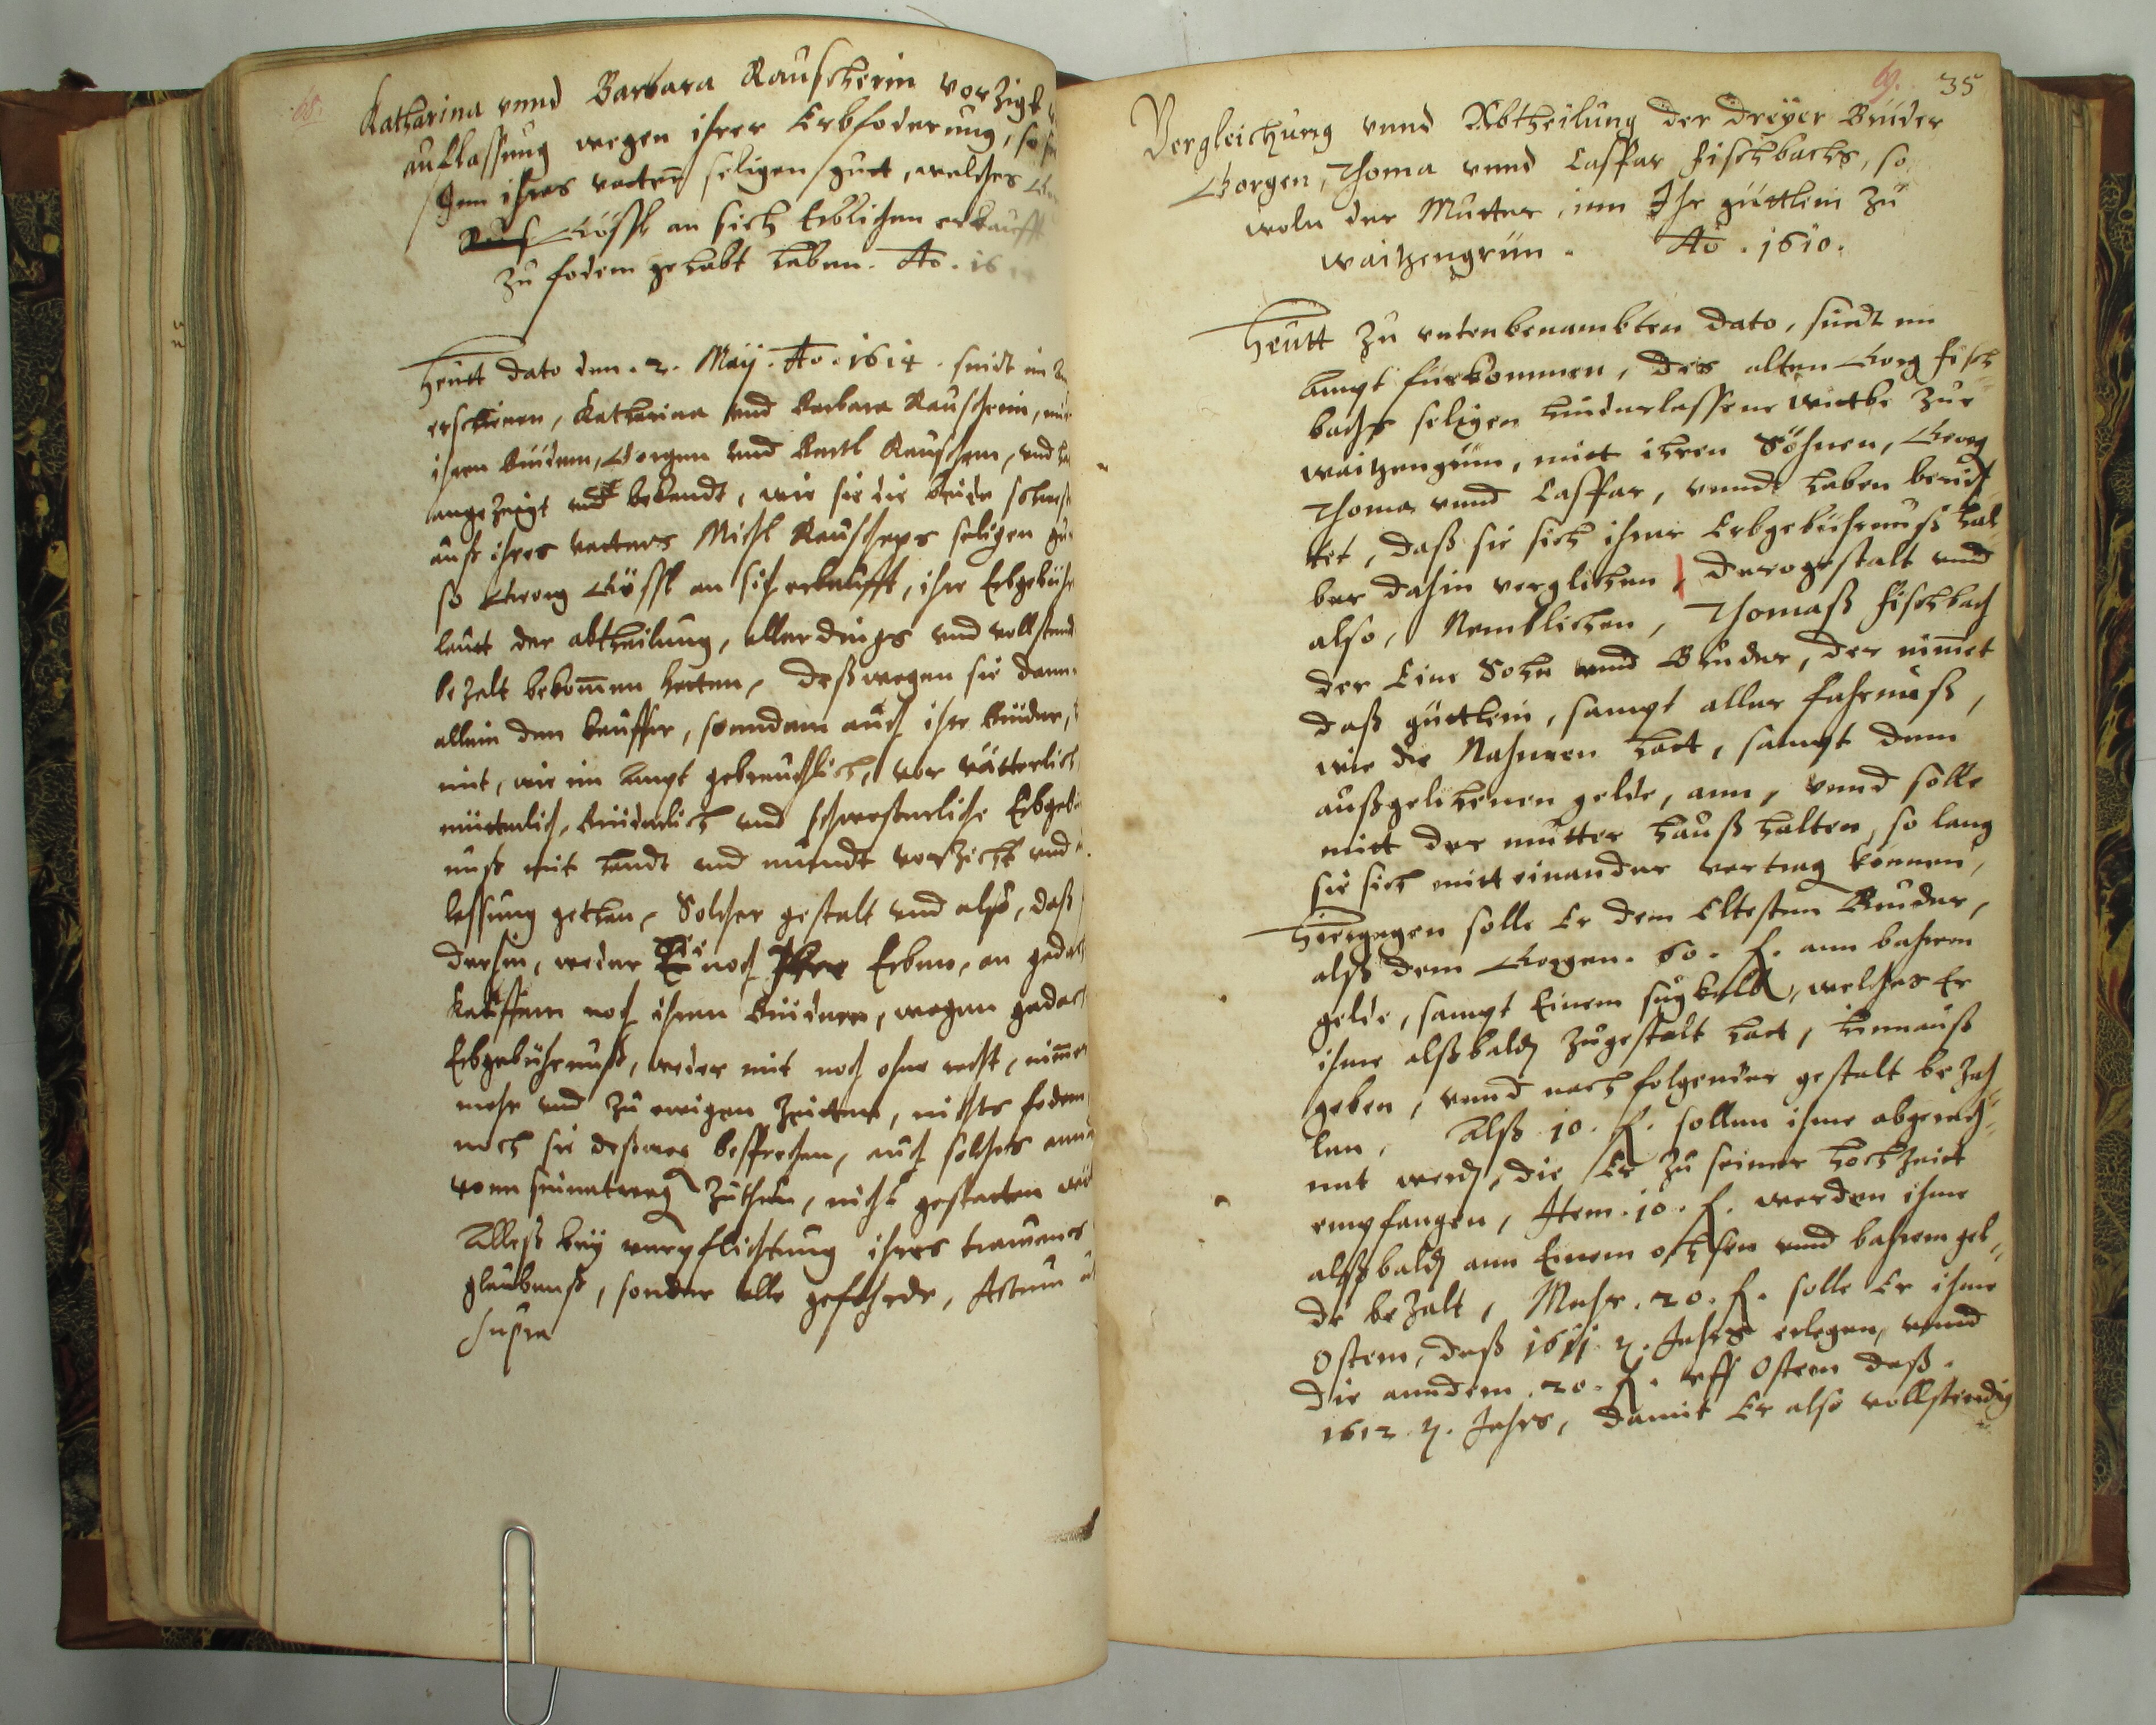 68.
Katharina vnnd Barbara Rauscherin vorzigt
aufflassung wegen ihrer Erbfoderung, so
Inn ihres vattern seligen gutt, welches
Gössl an sich Erblichen erkaufft
zu fodern gehabt haben. Ao. 16
Heutt dato den . 2. Maÿ. Ao. 1614. seindt im
erschienen, Katharina vnd Barbara Rauscherin,
ihren Brüdern, Georgen vnd Bartl Rauschern, vnd
angezeigt vnd bekendt, wie sie die beide schwest
auß ihres vatters Michl Rauschers seligen gu
so Georg Gössl an sich erkaufft, ihre Erbgebühr
lautt der abtheilung, allerdings vnd vollstend
bezalt bekommen hetten, deßwegen sie dann
allein den keuffer, sonndern auch ihre Brüder,
mit, wie im Ampt gebreuchlich, vor vätterlich
mütterlich, Brüderlich vnd schwesterliche Erbgebü
nuß mit handt vnd mundt vorzicht vnd
lassung gethan, Solcher gestalt vnd also, daß
dahin, weder Sie noch Ihre Erben, an gedach
keuffern noch ihren Brüdern, wegen gedach
Erbgebührnuß, weder mit noch ohne recht, nimmer
mehr vnd zu ewigen Zeitten, nichts fodern
noch sie deßweg besprechen, auch solches ann
von seinetweg zuthun, nicht gestatten
Alleß beÿ verpflichtung ihres trawens
glaubenß, sonder alle gefehrde, Actum
supra
69. 35
Vergleichung vnnd Abtheilung der dreÿer Brüder
Georgen, Thoma vnnd Caspar Fischbachs, so
woln der Mutter, inn Ihr güttlein zu
Waitzengrün. Ao. 1610.
Heütt zu vntenbenambten dato, sindt im
Ampt fürkommen, des alten Georg Fisch
bachs seligen hinderlassene wittbe zue
waitzengrün, mitt ihren Söhnen, Georg
Thoma vnnd Caspar, vnndt haben berich
tet, daß sie sich ihrer Erbgebührnuß hal
ber dahin verglichen, derogestalt vnnd
also, Nemblichen, Thomaß Fischbach
der Eine Sohn vnnd Brüder, der nimmet
daß güttlein, sampt aller fahrnuß,
wie die Nahmen hatt, sampt dem
außgelihenen gelde, ann, vnnd solle
mitt der mutter hauß halten, so lang
sie sich mitt einander vertrag können,
Hiergegen solle Er dem Eltesten Bruder,
alß dem Georgen. 60. f. ann bahrem
gelde, sampt Einem sugkalb, welches Er
ihme alßbaldt zugestalt hatt, hinnauß
geben, vnnd nach folgender gestalt bezah
len, Alß 10. f. sollen ihme abgerech
net werd, die Er zu seiner hochzeit
empfangen, Item. 10. f. werden ihme
alßbald ann Einem ochsen vnnd bahrem gel
de bezalt, Mehr. 20. f. solle Er ihme
Ostern, deß 1611. Jahrs erlegen, vnnd
die anndern. 20. f. vff Ostern deß
1612. Jahrs, damit Er also vollstendig